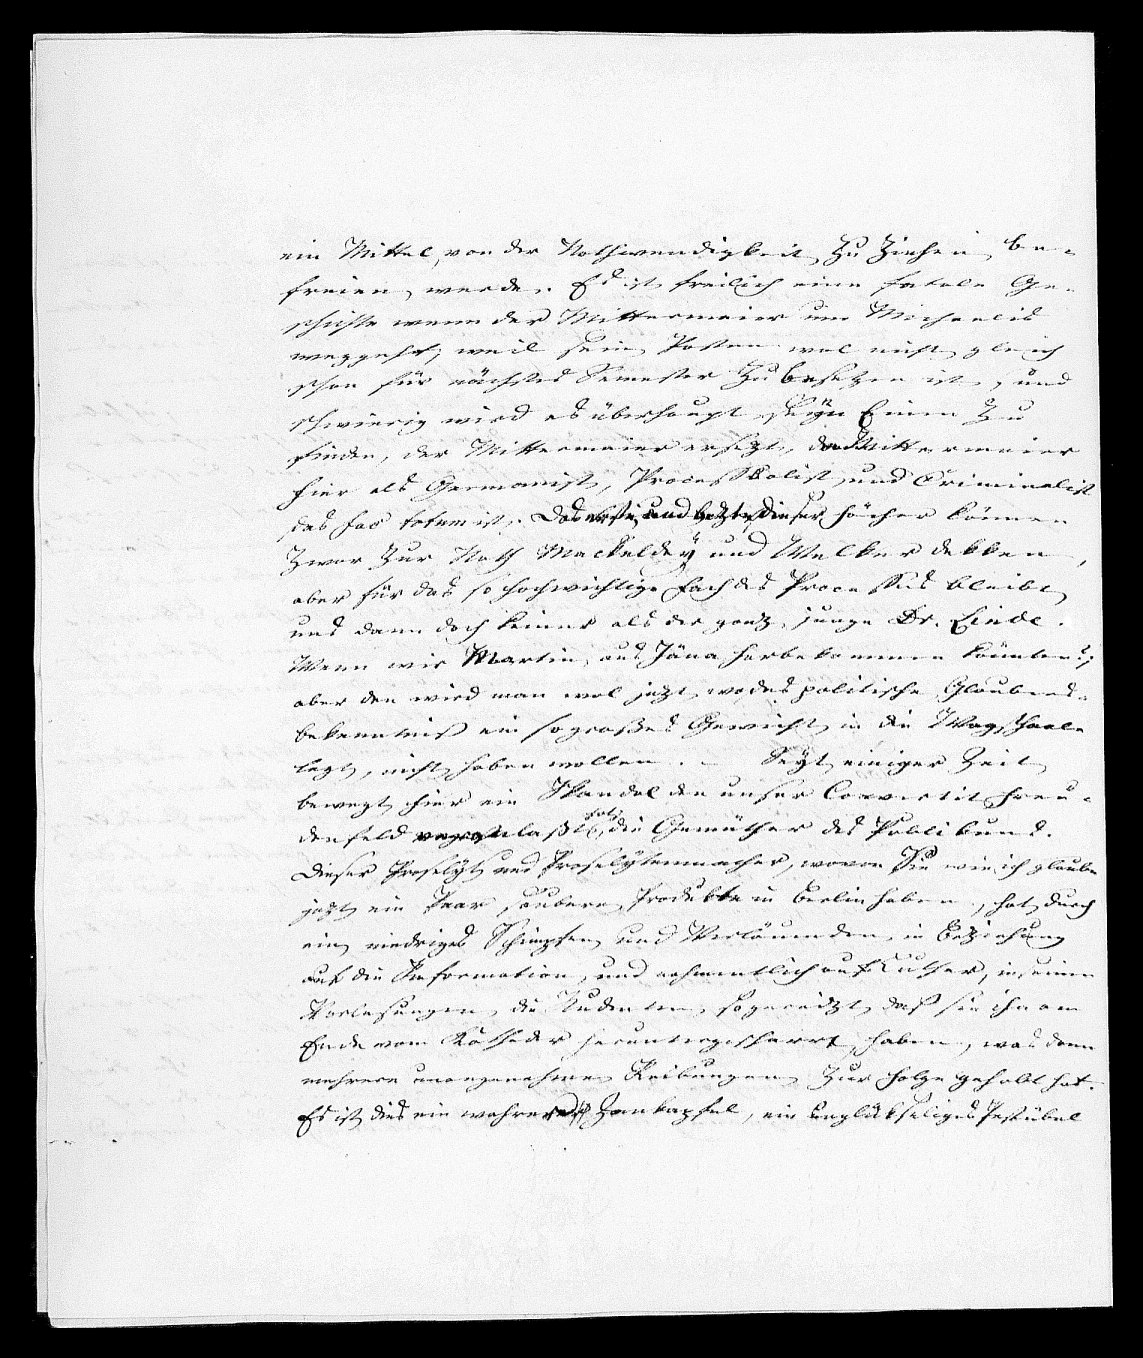 ein Mittel, von der Nothwendigkeit zu ziehen be-
freien werde. Es ist freilich eine fatale Ge-
schichte wenn der Mittermaier um Michaelis
weggeht, weil sein Posten wol nicht gleich
schon für nächstes Semester zu besetzen ist, und
schwierig wird es überhaupt seÿn Einen zu
finden, der Mittermaier ersezt, da Mittermaier
hier als Germanist, Processualist und Criminalist
das fac totum ist. Das erste und lezte dieser Fächer können
zwar zur Noth Mackeldeÿ und Welker dekken,
aber für das so hochwichtige Fach des Processus bleibt
uns dann doch keiner als der ganz junge Dr. Linde.
Wenn wir Martin aus Jäna herbekommen könnten;
aber den wird man wol jezt, wo das politische Glaubens-
bekenntniß ein so großes Gewicht in die Wagschaale
legt, nicht haben wollen. – Seÿt einiger Zeit
bewegt hier ein Skandal den unser Convertit Freu-
denfeld veranlaßt hat, die Gemüther des Publikums.
Dieser Proselÿt und Proselÿtenmacher, wovon Sie wie ich glaube
jezt ein Paar saubere Produkte in Berlin haben, hat durch
ein niedriges Schimpfen und Verläumden in Beziehung
auf die Reformation und nahmentlich auf Luther, in seinen
Vorlesungen die Studenten so gereizt, daß sie ihn am
Ende vom Katheder heruntergescharrt haben, was dann
mehrere unangenehme Reibungen zur Folge gehabt hat.
Es ist dies ein wahrer Zankapfel, ein unglükseliges Pestübel